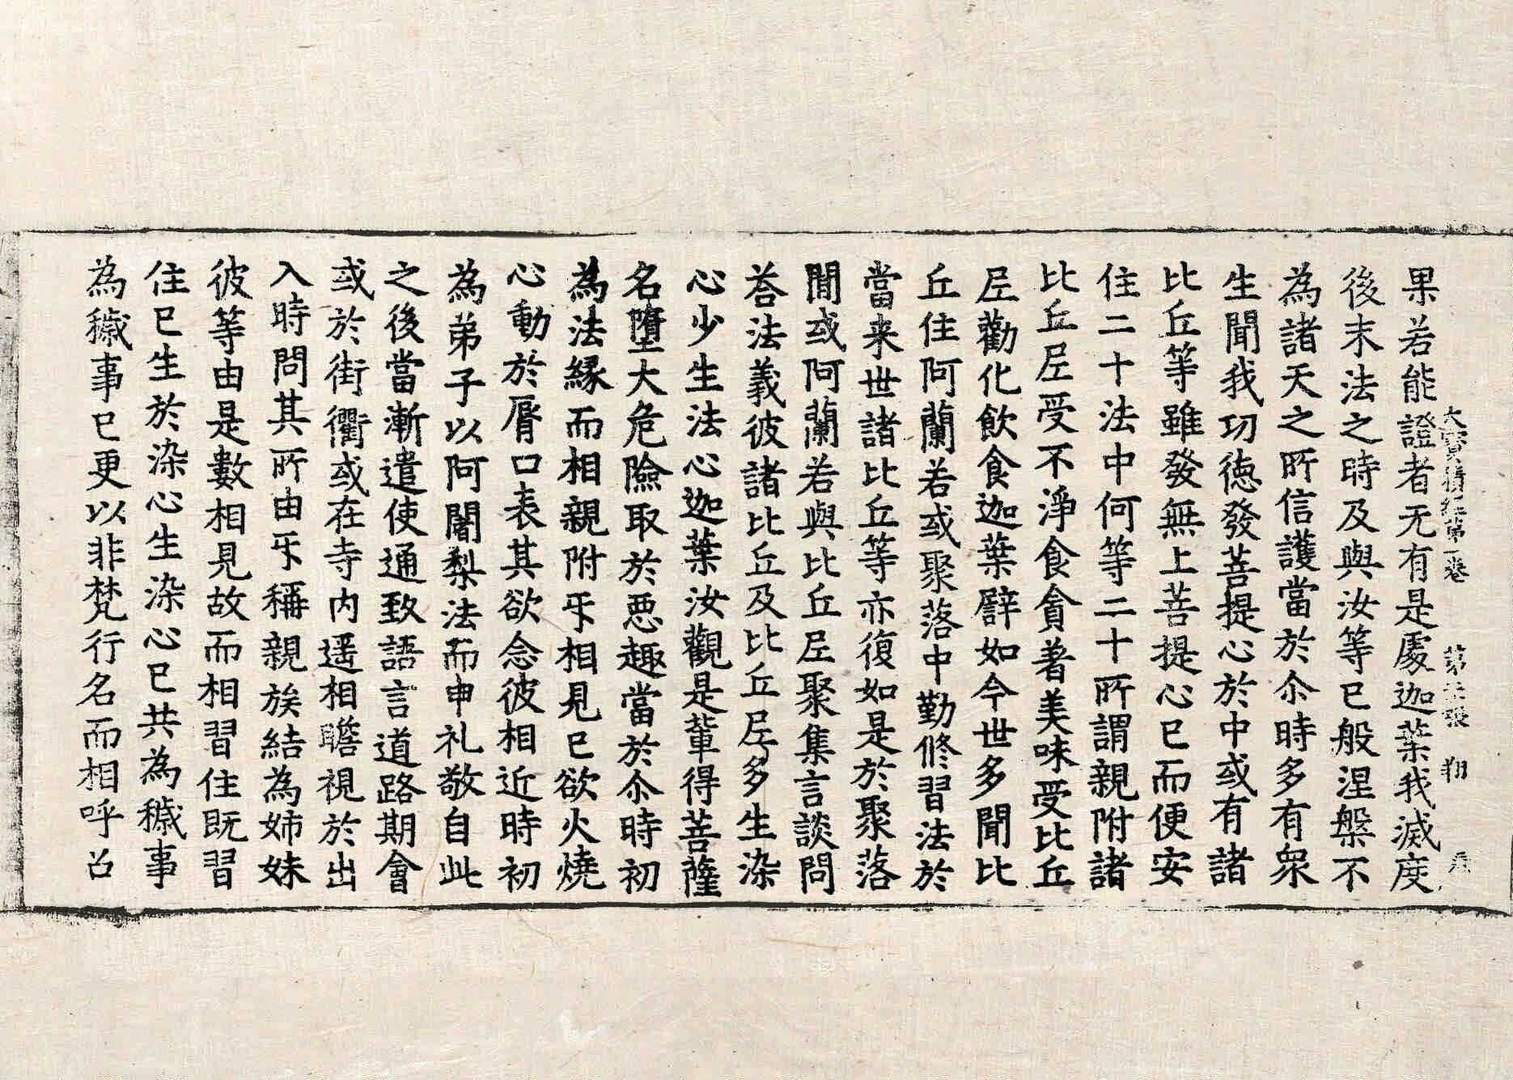 大寶積經第一卷　第二張　翔
果若能證者无有是處迦葉我滅度
後末法之時及與汝等已般涅槃不
為諸天之所信護當於尒時多有衆
生聞我功徳發菩提心於中或有諸
比丘等雖發無上菩提心已而便安
住二十法中何等二十所謂親附諸
比丘尼受不淨食食貪著美味受比丘
尼勸化飲食迦葉譬如今世多聞比
丘住阿蘭若或聚落中勤脩習法於
當来世諸比丘等亦復如是於聚落
間或阿蘭若與比丘尼聚集言談問
荅法義彼諸比丘及比丘尼多生染
心少生法心迦葉汝觀是輩得菩薩
名墮大危險取於惡趣當於尒時初
為法緣而相親附㸦相見已欲火燒
心動於脣口表其欲念彼相近時初
為弟子以阿闍梨法而申礼敬自此
之後當漸遣使通致語言道路期會
或於街衢或在寺内遥相瞻視於出
入時問其所由㸦稱親族結為姊妹
彼等由是數相見故而相習住既習
住已生於染心生染心已共為穢事
為穢事已更以非梵行名而相呼召